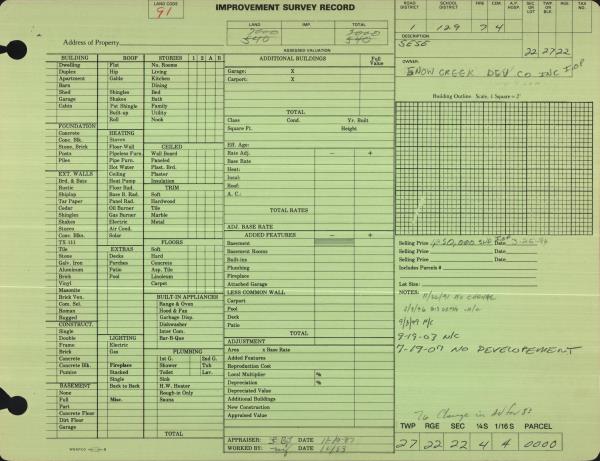 LAND CODE
91
IMPROVEMENT SURVEY RECORD
LAND IMP. TOTAL
540 540
ASSESSED VALUATION
Address of Property
ROAD DISTRICT SCHOOL DISTRICT FIRE CEM. SEC OR LOT TWP OR BLK RGE TAX NO.
1 129 7 4
DESCRIPTION
SESE 22 27 22
OWNER
SNOW CREEK DEV CO INC
Building Outline Scale, 1 Square = 2'
BUILDING ROOF STORIES 1 2 A B
Dwelling Flat No. Rooms
Duplex Hip Living
Apartment Gable Kitchen
Barn Dining
Shed Shingles Bed
Garage Shakes Bath
Cabin Pat Shingle Family
Built-up Utility
Roll Nook
FOUNDATION
Concrete HEATING
Conc. Blk. Stoves
Stone, Brick Floor-Wall CEILED
Posts Pipeless Furn. Wall Board
Piles Pipe Furn. Paneled
Hot Water Plast. Brd.
EXT. WALLS Ceiling Plaster
Brd. & Bats Heat Pump Insulation
Rustic Floor Rad. TRIM
Shiplap Base B. Rad. Soft
Tar Paper Panel Rad. Hardwood
Cedar Oil Burner Tile
Shingles Gas Burner Marble
Shakes Electric Metal
Stores Air Cond.
Conc. Blks. Solar
TX 111 FLOORS
Tile EXTRAS Soft
Stone Decks Hard
Galv. Iron Porches Concrete
Aluminum Patio Asp. Tile
Brick Pool Linoleum
Vinyl Carpet
Masonite
Brick Ven. BUILT-IN APPLIANCES
Com. Sel. Range & Oven
Roman Hood & Fan
Rugged Garbage Disp.
CONSTRUCT. Dishwasher
Single Inter Com.
Double LIGHTING Bar-B-Que
Frame Electric
Brick Gas PLUMBING
Concrete 1st G. 2nd G.
Concrete Blk. Fireplace Shower Tub
Pumice Stacked Toilet Lav.
Single Sink
BASEMENT Back to Back H.W. Heater
None Rough-in Only
Full Misc. Sauna
Part
Concrete Floor
Dirt Floor
Garage
TOTAL
ADDITIONAL BUILDINGS Full Value
Garage: X
Carport: X
TOTAL
Class Cond. Yr. Built
Square Ft. Height
Eff. Age:
Rate Adj. - +
Base Rate
Heat:
Insul:
Roof:
A. C.:
TOTAL RATES
ADJ. BASE RATE
ADDED FEATURES - +
Basement
Basement Rooms
Built-ins
Plumbing
Fireplace
Attached Garage
LESS COMMON WALL
Carport
Pool
Deck
Patio
TOTAL
ADJUSTMENT
Area x Base Rate
Added Features
Reproduction Cost
Local Multiplier %
Depreciation %
Depreciated Value
Additional Buildings
New Construction
Appraised Value
APPRAISER: DATE
WORKED BY: DATE
Selling Price Date
Selling Price Date
Includes Parcels #
Lot Size:
NOTES:
9/3/97 N/C
9-19-03 N/C
7-19-07 NO DEVELOPEMENT
TWP RGE SEC ¼S 1/16 S PARCEL
27 22 22 4 4 0000